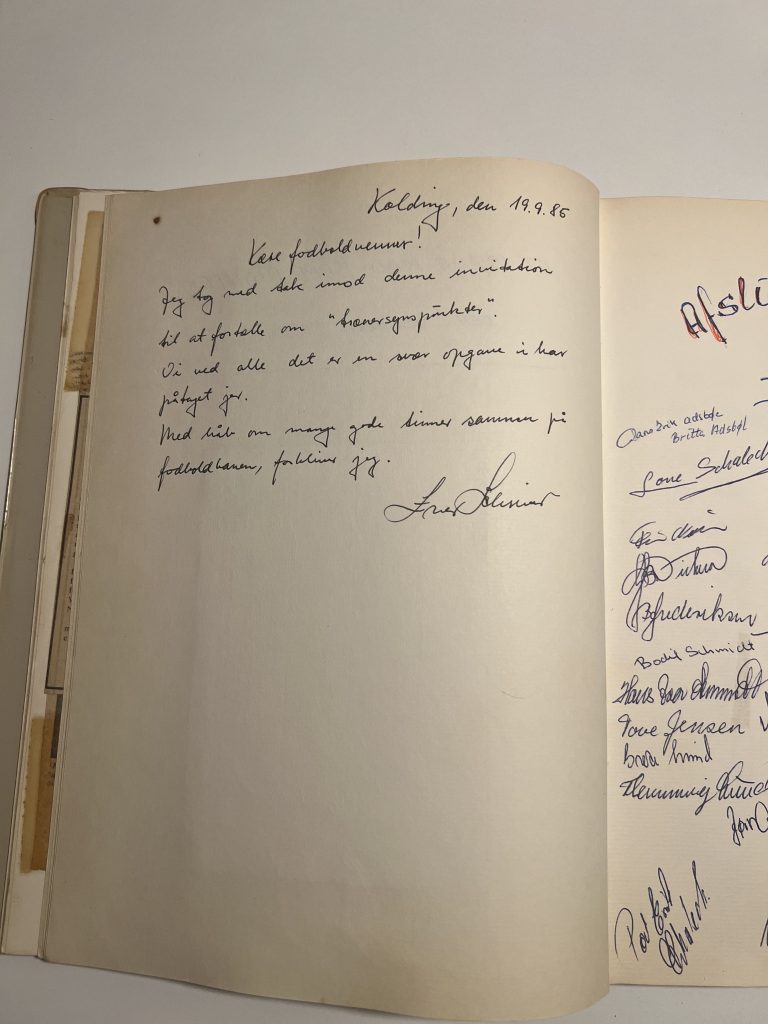 Kolding, den 19.9.85
Kære fodboldvenner!
Jeg tog med tak imod denne invitation
til at fortælle om "trænersynspunkter".
Vi ved alle det er en svær opgave i har
påtaget jer.
Med håb om mange gode timer sammen på
fodboldbanen, forbliver jeg.
Afsl
Hans Erik Adsbøl
Britta Adsbøl
Lone Schalech
B Frederiksen
Bodil Schmidt
Hans
Tove Jensen
Flemming
Poul Erik